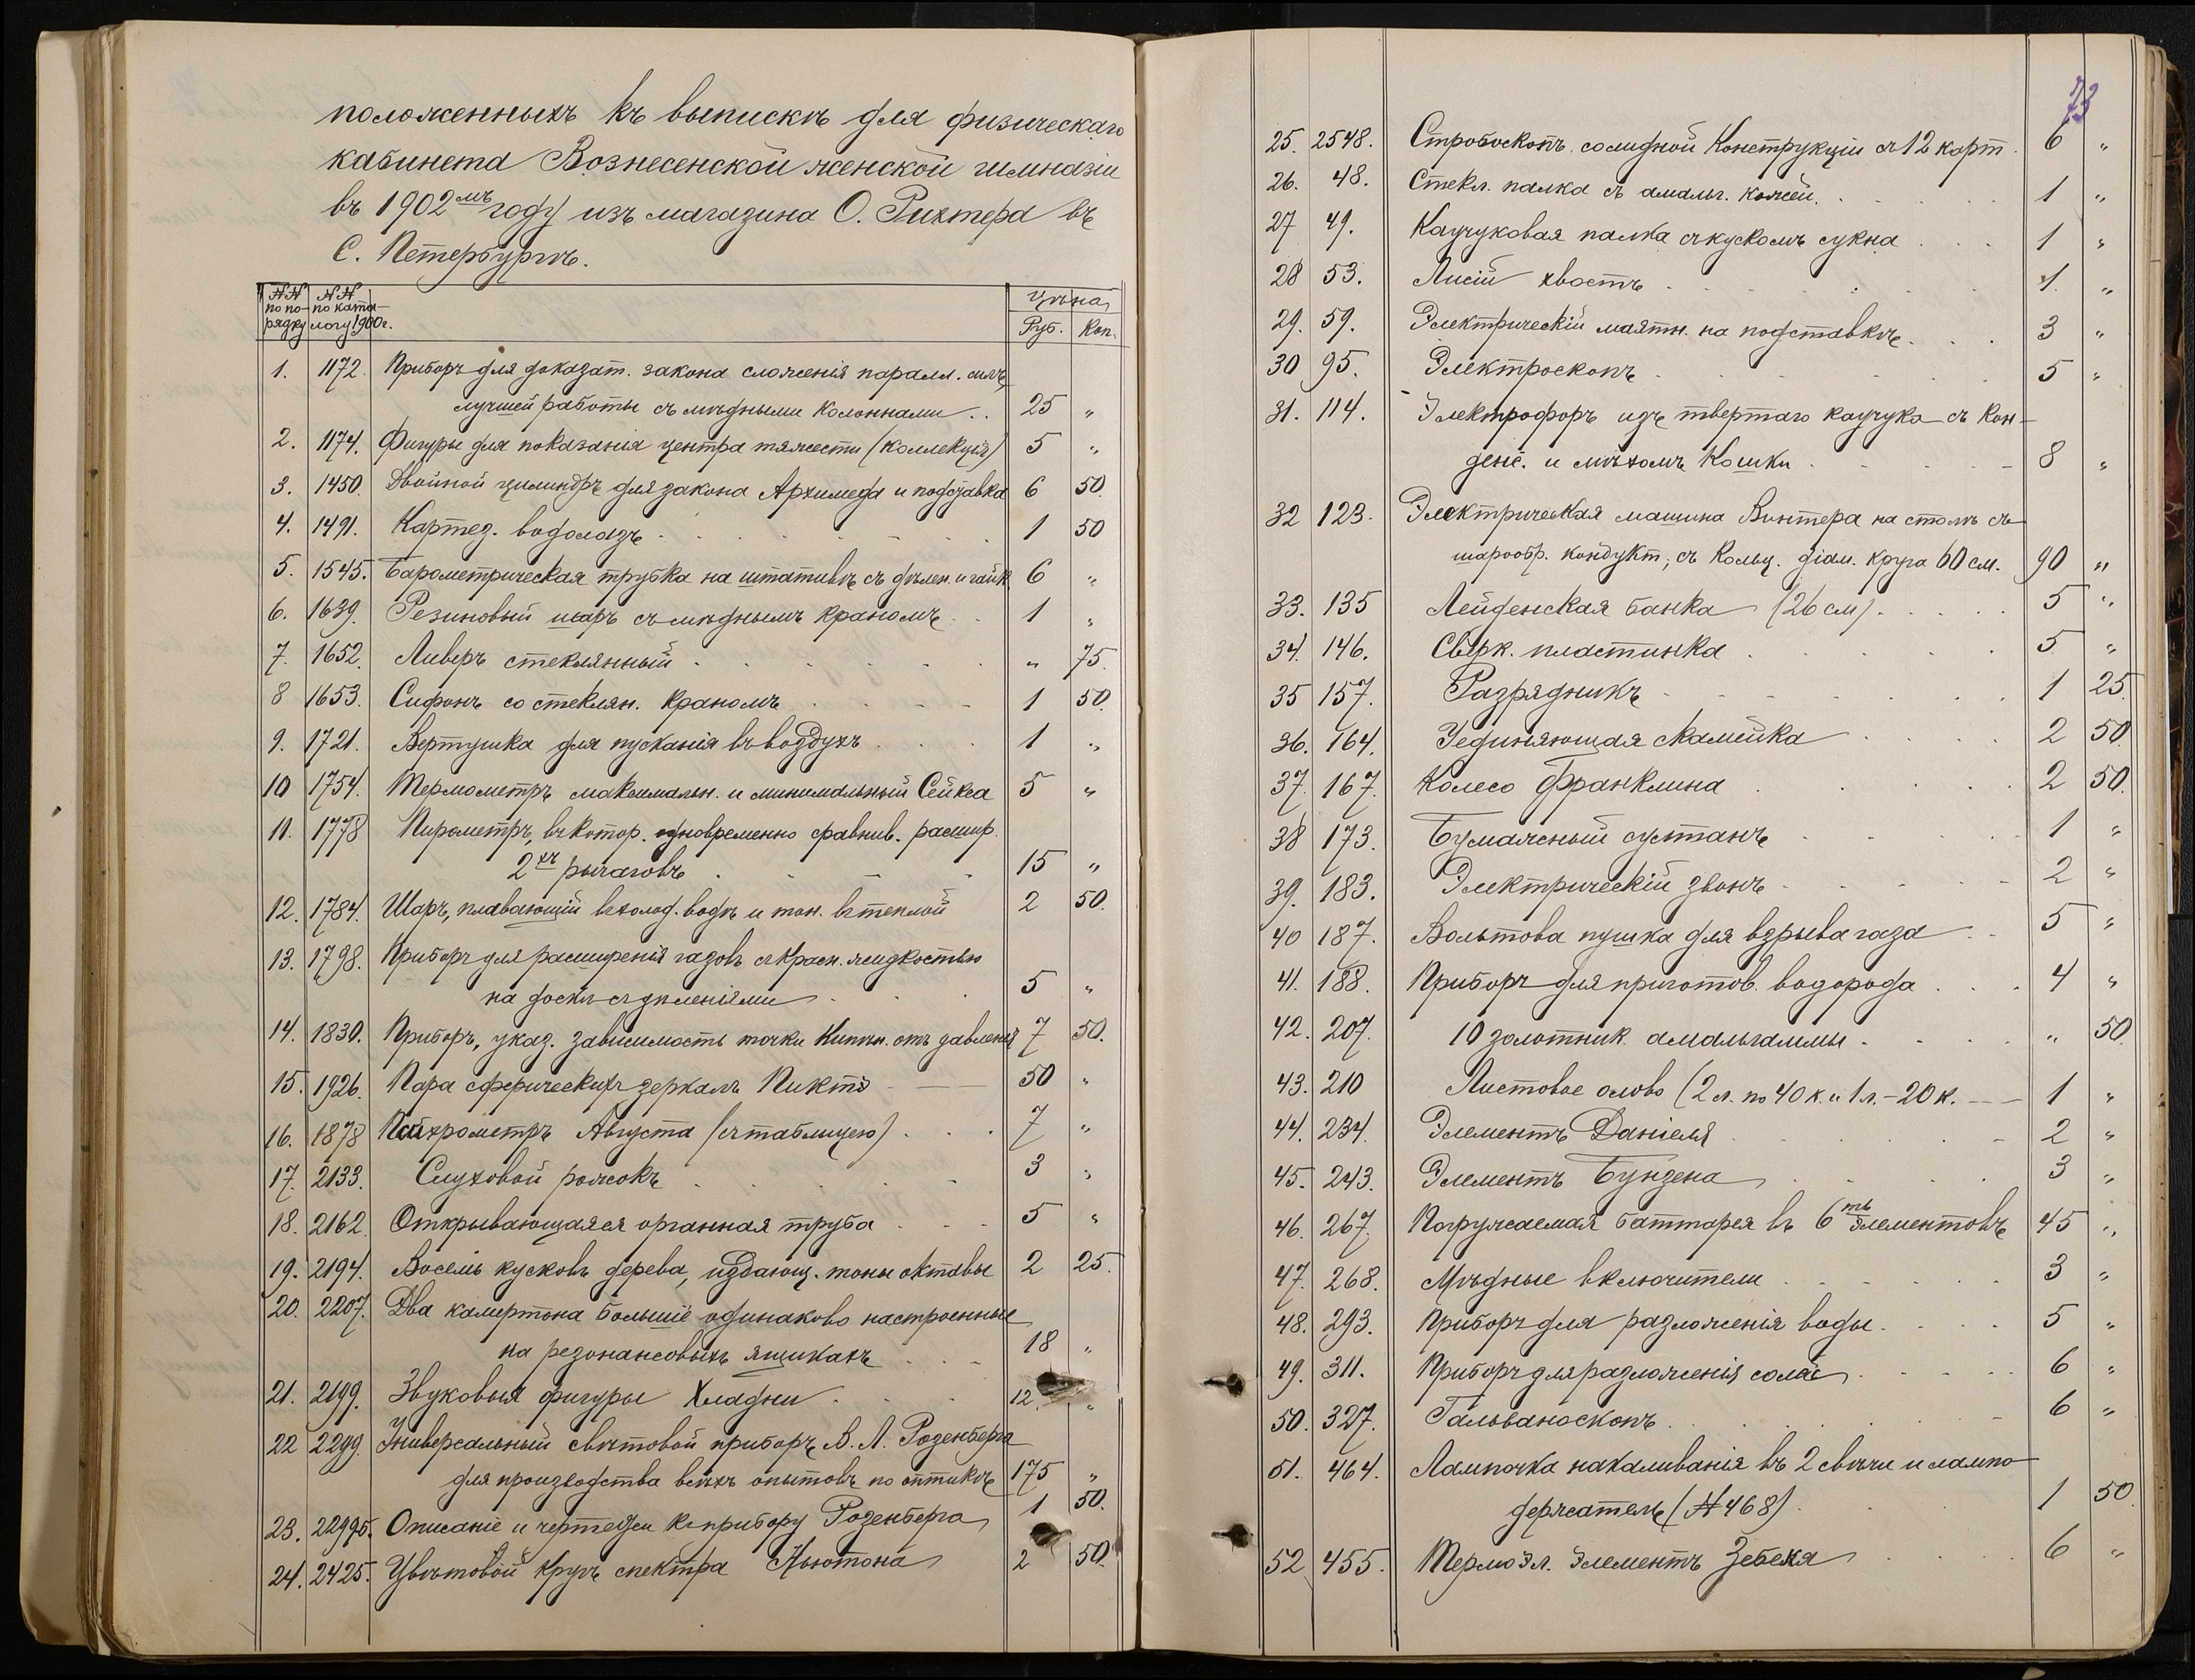 положенныхъ къ выпискѣ для физическаго
кабинета Вознесенской женской гимназіи
въ 1902мъ году изъ магазина О. Рихтера въ
С. Петербургѣ.
№№ по по- рядку №№ по ката- логу 1900г. Цѣна
Руб. Коп.
1. 1172. Приборъ для доказат. закона сложенія паралл. силъ,
лучшей работы съ мѣдными колоннами . . 25 "
2. 1174. Фигуры для показанія центра тяжести (коллекція) 5 "
3. 1450. Двойной цилиндръ для закона Архимеда и подставка 6 50.
4. 1491. Картез. водолазъ 1 50
5. 1545. Барометрическая трубка на штативѣ съ дѣлен. и гайк 6 "
6. 1639. Резиновый шаръ съ мѣднымъ краномъ 1 "
7. 1652. Ливеръ стеклянный " 75.
8 1653. Сифонъ со стеклян. краномъ 1 50.
9. 1721. Вертушка для пусканія въ воздухъ 1 "
10 1754. Термометръ максимальн. и минимальный Сейкса 5 "
11. 1778 Пирометръ, въ котор. одновременно сравнив. расшир.
2хъ рычаговъ 15 "
12. 1784. Шаръ, плавающій въ холод. водѣ и тон. въ теплой 2 50.
13. 1798. Приборъ для расширенія газовъ съ красн. жидкостью
на доскѣ съ дѣленіями 5 "
14. 1830. Приборъ, указ. зависимость точки кипѣн. отъ давленія 7 50.
15. 1926. Пара сферическихъ зеркалъ Пиктэ 50 "
16. 1878 Психрометръ Августа (съ таблицею) 7 "
17. 2133. Слуховой рожокъ 3 "
18. 2162. Открывающаяся органная труба 5 "
19. 2194. Восемь кусковъ дерева, издающ. тоны октавы 2 25.
20. 2207. Два камертона большіе одинаково настроенные
на резонансовыхъ ящикахъ 18 "
21. 2199. Звуковыя фигуры Хладни 12. "
22 2299. Универсальный свѣтовой приборъ В. Л. Розенберга
для производства всѣхъ опытовъ по оптикѣ 175 "
23. 2299б. Описаніе и чертежи къ прибору Розенберга 1 50.
24. 2425. Цвѣтовой кругъ спектра Ньютона 2 50.
73
25. 2548. Стробоскопъ солидной конструкціи съ 12 карт. 6 "
26. 48. Стекл. палка съ амальг. кожей. 1 "
27 49. Каучуковая палка съ кускомъ сукна 1 "
28 53. Лисій хвостъ 1. "
29. 59. Электрическій маятн. на подставкѣ 3 "
30 95. Электроскопъ 5 "
31. 114. Электрофоръ изъ твертаго каучука съ кон-
денс. и мѣхомъ кошки 8 "
32 123. Электрическая машина Винтера на столѣ съ
шарообр. кондукт., съ кольц. діам. круга 60 см. 90 "
33. 135 Лейденская банка (26 см) 5 "
34. 146. Сверк. пластинка 5 "
35 157. Разрядникъ 1 25.
36. 164. Уединяющая скамейка 2 50.
37. 167. Колесо Франклина 2 50.
38 173. Бумажный султанъ 1 "
39. 183. Электрическій звонъ 2 "
40 187. Вольтова пушка для взрыва газа 5 "
41. 188. Приборъ для приготов. водорода 4 "
42. 207. 10 золотник. амальгаммы " 50.
43. 210 Листовое олово (2 л. по 40 к. и 1 л. – 20 к. 1 "
44. 234. Элементъ Даніеля 2 "
45. 243. Элементъ Бунзена 3 "
46. 267. Погружаемая баттарея въ 6ть элементовъ 45 "
47. 268. Мѣдные включители 3 "
48. 293. Приборъ для разложенія воды 5 "
49. 311. Приборъ для разложенія солей 6 "
50. 327. Гальваноскопъ 6 "
51. 464. Лампочка накаливанія въ 2 свѣчи и лампо-
держатель (№ 468) 1 50.
52 455. Термоэл. элементъ Зебека 6 "